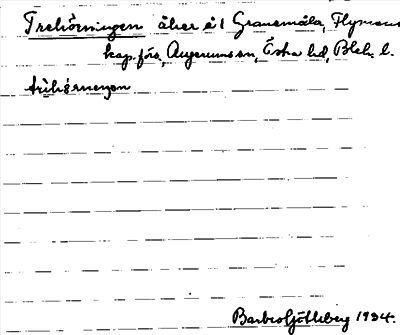 Trehörningen åker å 1 Granemåla, Flymens
kap. förs, Augerums sn, Östra hd, Blek. l.
trihǿrneŋen
Barbro Götlsberg 1934.